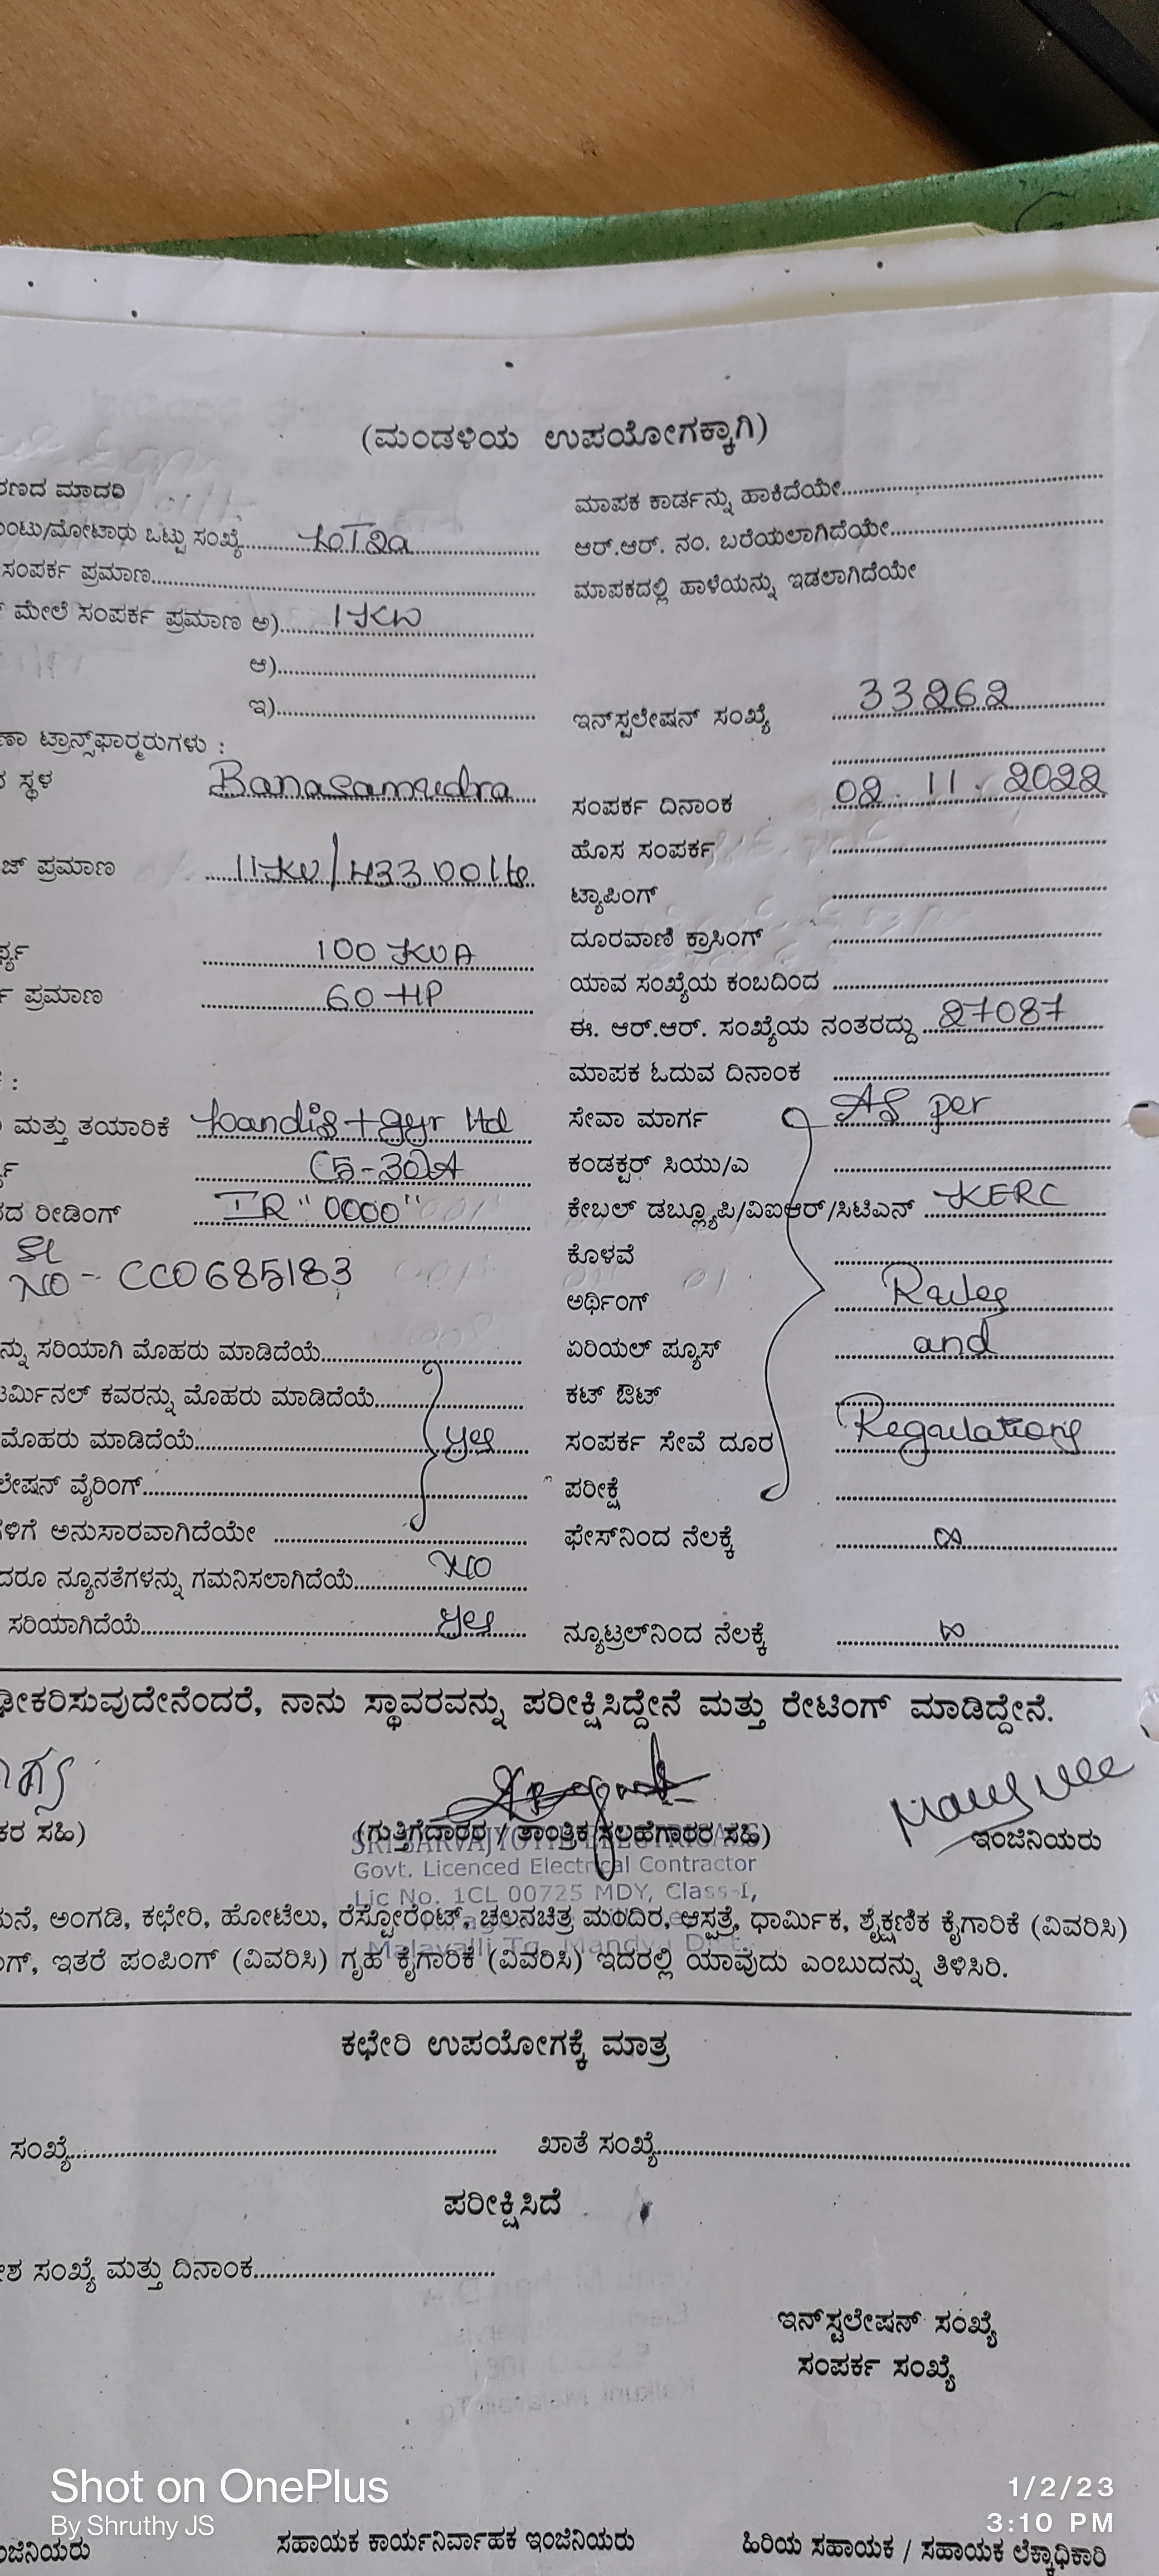 (ಮಂಡಳಿಯ ಉಪಯೋಗಕ್ಕಾಗಿ)
ರಣದ ಮಾದರಿ
ಂಟು/ಮೋಟಾರು ಒಟ್ಟು ಸಂಖ್ಯೆ
ಸಂಪರ್ಕ ಪ್ರಮಾಣ
ಮೇಲೆ ಸಂಪರ್ಕ ಪ್ರಮಾಣ ಅ) 1KW
ಆ)
ಇ)
ಣಾ ಟ್ರಾನ್ಸ್‌ಫಾರ್ಮರುಗಳು :
ಸ್ಥಳ Banasamudra
ಜ್ ಪ್ರಮಾಣ 11KV/433 Volte
ರ್ಥ್ಯ 100 KVA
ಪ್ರಮಾಣ 60 HP
:
ಮತ್ತು ತಯಾರಿಕೆ Landis+gyr ltd
(5-30)A
ದ ರೀಡಿಂಗ್ IR "0000"
Sl
NO - CC0685183
ನ್ನು ಸರಿಯಾಗಿ ಮೊಹರು ಮಾಡಿದೆಯೆ
ಟರ್ಮಿನಲ್ ಕವರನ್ನು ಮೊಹರು ಮಾಡಿದೆಯೆ
ಮೊಹರು ಮಾಡಿದೆಯೆ yes
ಲೇಷನ್ ವೈರಿಂಗ್
ಳಿಗೆ ಅನುಸಾರವಾಗಿದೆಯೇ
ದರೂ ನ್ಯೂನತೆಗಳನ್ನು ಗಮನಿಸಲಾಗಿದೆಯೆ NO
ಸರಿಯಾಗಿದೆಯೆ yes
ಮಾಪಕ ಕಾರ್ಡನ್ನು ಹಾಕಿದೆಯೇ
ಆರ್.ಆರ್. ನಂ. ಬರೆಯಲಾಗಿದೆಯೇ
ಮಾಪಕದಲ್ಲಿ ಹಾಳೆಯನ್ನು ಇಡಲಾಗಿದೆಯೇ
ಇನ್‌ಸ್ಟಲೇಷನ್ ಸಂಖ್ಯೆ 33262
ಸಂಪರ್ಕ ದಿನಾಂಕ 02.11.2022
ಹೊಸ ಸಂಪರ್ಕ
ಟ್ಯಾಪಿಂಗ್
ದೂರವಾಣಿ ಕ್ರಾಸಿಂಗ್
ಯಾವ ಸಂಖ್ಯೆಯ ಕಂಬದಿಂದ
ಈ. ಆರ್.ಆರ್. ಸಂಖ್ಯೆಯ ನಂತರದ್ದು 27087
ಮಾಪಕ ಓದುವ ದಿನಾಂಕ
ಸೇವಾ ಮಾರ್ಗ As per
ಕಂಡಕ್ಟರ್ ಸಿಯು/ಎ
ಕೇಬಲ್ ಡಬ್ಲ್ಯೂಪಿ/ವಿಐಆರ್/ಸಿಟಿಎನ್ KERC
ಕೊಳವೆ
ಅರ್ಥಿಂಗ್ Rules
ಏರಿಯಲ್ ಪ್ಯೂಸ್ and
ಕಟ್ ಔಟ್
ಸಂಪರ್ಕ ಸೇವೆ ದೂರ Regulations
ಪರೀಕ್ಷೆ
ಫೇಸ್‌ನಿಂದ ನೆಲಕ್ಕೆ ∞
ನ್ಯೂಟ್ರಲ್‌ನಿಂದ ನೆಲಕ್ಕೆ ∞
ಢೀಕರಿಸುವುದೇನೆಂದರೆ, ನಾನು ಸ್ಥಾವರವನ್ನು ಪರೀಕ್ಷಿಸಿದ್ದೇನೆ ಮತ್ತು ರೇಟಿಂಗ್ ಮಾಡಿದ್ದೇನೆ.
ಕರ ಸಹಿ) (ಗುತ್ತಿಗೆದಾರರ / ತಾಂತ್ರಿಕ ಸಲಹೆಗಾರರ ಸಹಿ) ಇಂಜಿನಿಯರು
Govt. Licenced Electrical Contractor
Lic No. 1CL 00725 MDY, Class-I,
ುನೆ, ಅಂಗಡಿ, ಕಛೇರಿ, ಹೋಟೆಲು, ರೆಸ್ಟೋರೆಂಟ್, ಚಲನಚಿತ್ರ ಮಂದಿರ, ಆಸ್ಪತ್ರೆ, ಧಾರ್ಮಿಕ, ಶೈಕ್ಷಣಿಕ ಕೈಗಾರಿಕೆ (ವಿವರಿಸಿ)
Malavalli Tq, Mandya Dist.
ಂಗ್, ಇತರೆ ಪಂಪಿಂಗ್ (ವಿವರಿಸಿ) ಗೃಹ ಕೈಗಾರಿಕೆ (ವಿವರಿಸಿ) ಇದರಲ್ಲಿ ಯಾವುದು ಎಂಬುದನ್ನು ತಿಳಿಸಿರಿ.
ಕಛೇರಿ ಉಪಯೋಗಕ್ಕೆ ಮಾತ್ರ
ಸಂಖ್ಯೆ ಖಾತೆ ಸಂಖ್ಯೆ
ಪರೀಕ್ಷಿಸಿದೆ
ೇಶ ಸಂಖ್ಯೆ ಮತ್ತು ದಿನಾಂಕ
ಇನ್‌ಸ್ಟಲೇಷನ್ ಸಂಖ್ಯೆ
ಸಂಪರ್ಕ ಸಂಖ್ಯೆ
Shot on OnePlus
By Shruthy JS
1/2/23
3:10 PM
ಂಜಿನಿಯರು ಸಹಾಯಕ ಕಾರ್ಯನಿರ್ವಾಹಕ ಇಂಜಿನಿಯರು ಹಿರಿಯ ಸಹಾಯಕ / ಸಹಾಯಕ ಲೆಕ್ಕಾಧಿಕಾರಿ